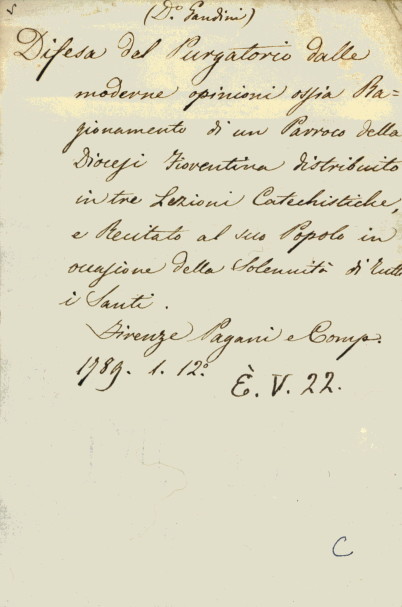 (D.º Gandini)
Difesa del Purgatorio dalle
moderne opinioni ossia Ra=
gionamento di un Parroco della
Diocesi Fiorentina distribuito
in tre Lezioni Catechistiche,
e Recitato al suo Popolo in
occasione della Solennità di Tutti
i Santi.
Firenze Pagani e Comp.
1789. 1. 12.º
È. V. 22.
C